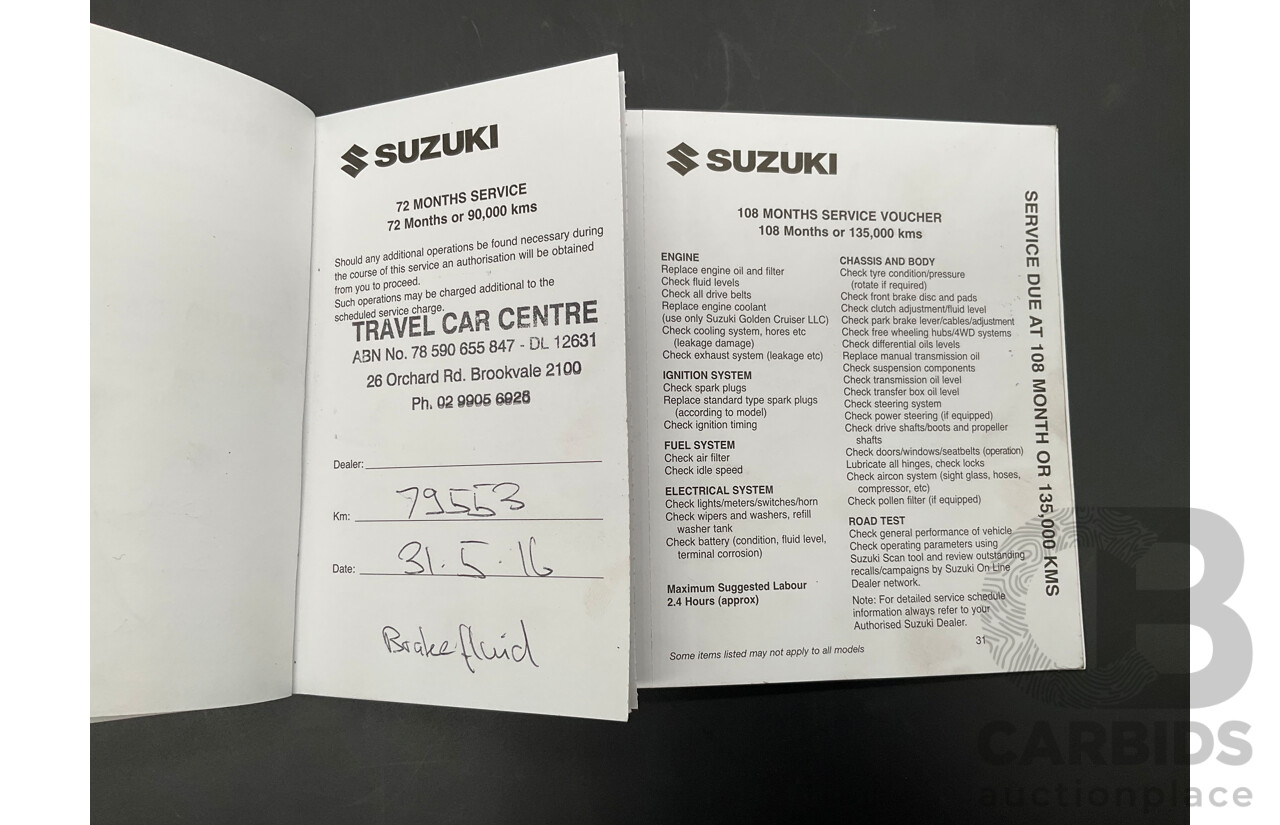 SUZUKI
72 MONTHS SERVICE
72 Months or 90,000 kms
Should any additional operations be found necessary during
the course of this service an authorisation will be obtained
from you to proceed.
Such operations may be charged additional to the
scheduled service charge.
TRAVEL CAR CENTRE
ABN No. 78 590 655 847 - DL 12631
26 Orchard Rd. Brookvale 2100
Ph. 02 9905 6928
Dealer:
Km: 79553
Date: 31.5.16
Brake fluid
SUZUKI
108 MONTHS SERVICE VOUCHER
108 Months or 135,000 kms
ENGINE
Replace engine oil and filter
Check fluid levels
Check all drive belts
Replace engine coolant
(use only Suzuki Golden Cruiser LLC)
Check cooling system, hores etc
(leakage damage)
Check exhaust system (leakage etc)
IGNITION SYSTEM
Check spark plugs
Replace standard type spark plugs
(according to model)
Check ignition timing
FUEL SYSTEM
Check air filter
Check idle speed
ELECTRICAL SYSTEM
Check lights/meters/switches/horn
Check wipers and washers, refill
washer tank
Check battery (condition, fluid level,
terminal corrosion)
Maximum Suggested Labour
2.4 Hours (approx)
Some items listed may not apply to all models
CHASSIS AND BODY
Check tyre condition/pressure
(rotate if required)
Check front brake disc and pads
Check clutch adjustment/fluid level
Check park brake lever/cables/adjustment
Check free wheeling hubs/4WD systems
Check differential oils levels
Replace manual transmission oil
Check suspension components
Check transmission oil level
Check transfer box oil level
Check steering system
Check power steering (if equipped)
Check drive shafts/boots and propeller
shafts
Check doors/windows/seatbelts (operation)
Lubricate all hinges, check locks
Check aircon system (sight glass, hoses,
compressor, etc)
Check pollen filter (if equipped)
ROAD TEST
Check general performance of vehicle
Check operating parameters using
Suzuki Scan tool and review outstanding
recalls/campaigns by Suzuki On Line
Dealer network.
Note: For detailed service schedule
information always refer to your
Authorised Suzuki Dealer.
31
SERVICE DUE AT 108 MONTH OR 135,000 KMS
CB
CARBIDS
auctionplace